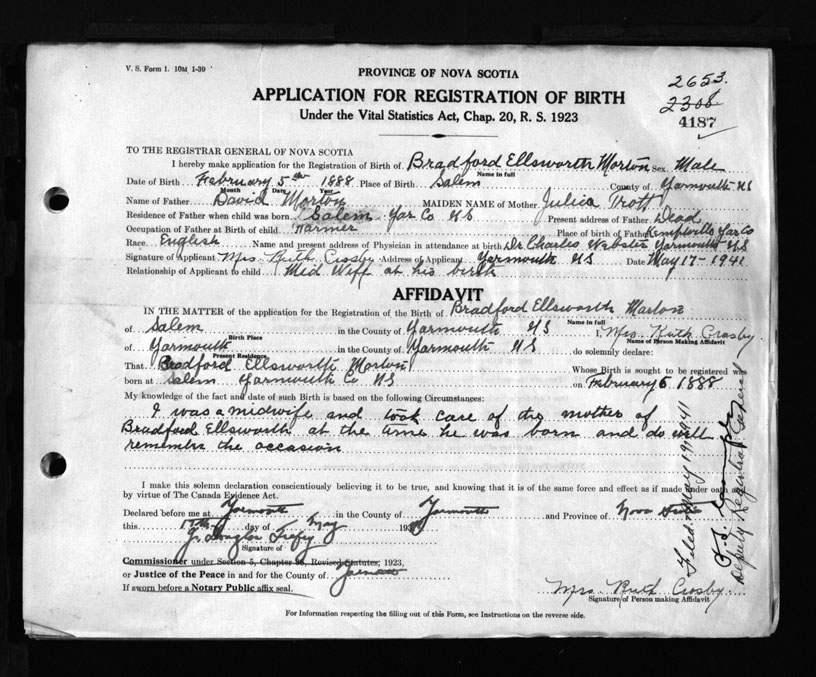 V. S. Form 1. 10M 1-39
PROVINCE OF NOVA SCOTIA
2653.
2308
4187
APPLICATION FOR REGISTRATION OF BIRTH
Under the Vital Statistics Act, Chap. 20, R. S. 1923
TO THE REGISTRAR GENERAL OF NOVA SCOTIA
I hereby make application for the Registration of Birth of Bradford Ellsworth Morton Sex Male
Name in full
Date of Birth February 5th 1888 Place of Birth Salem County of Yarmouth NS
Month Date Year
Name of Father David Morton MAIDEN NAME of Mother Julica Trott
Residence of Father when child was born Salem Yar Co NS Present address of Father Dead
Occupation of Father at Birth of child Farmer Place of birth of Father Kemptville Yar Co
Race English Name and present address of Physician in attendance at birth Dr Charles Webster Yarmouth NS
Signature of Applicant Mrs. Ruth Crosby Address of Applicant Yarmouth NS Date May 17-1941
Relationship of Applicant to child Mid Wiff at his birth
AFFIDAVIT
IN THE MATTER of the application for the Registration of the Birth of Bradford Ellsworth Morton
Name in full
of Salem in the County of Yarmouth NS I, Mrs Ruth Crosby
Birth Place Name of Person Making Affidavit
of Yarmouth in the County of Yarmouth NS do solemnly declare:
Present Residence
That Bradford Ellsworth Morton Whose Birth is sought to be registered was
born at Salem Yarmouth Co NS on February 5 1888
My knowledge of the fact and date of such Birth is based on the following Circumstances:
I was a midwife and took care of the mother of
Bradford Ellsworth at the time he was born and do well
remember the occasion
I make this solemn declaration conscientiously believing it to be true, and knowing that it is of the same force and effect as if made under oath and
by virtue of The Canada Evidence Act.
Declared before me at Yarmouth in the County of Yarmouth and Province of Nova Scotia
this 17th day of May 19
Signature of
Commissioner under Section 5, Chapter 36, Revised Statutes, 1923,
or Justice of the Peace in and for the County of Yarmouth
If sworn before a Notary Public affix seal.
Mrs Ruth Crosby
Signature of Person making Affidavit
For Information respecting the filling out of this Form, see Instructions on the reverse side.
Filed May 19 1941
Deputy Registrar General